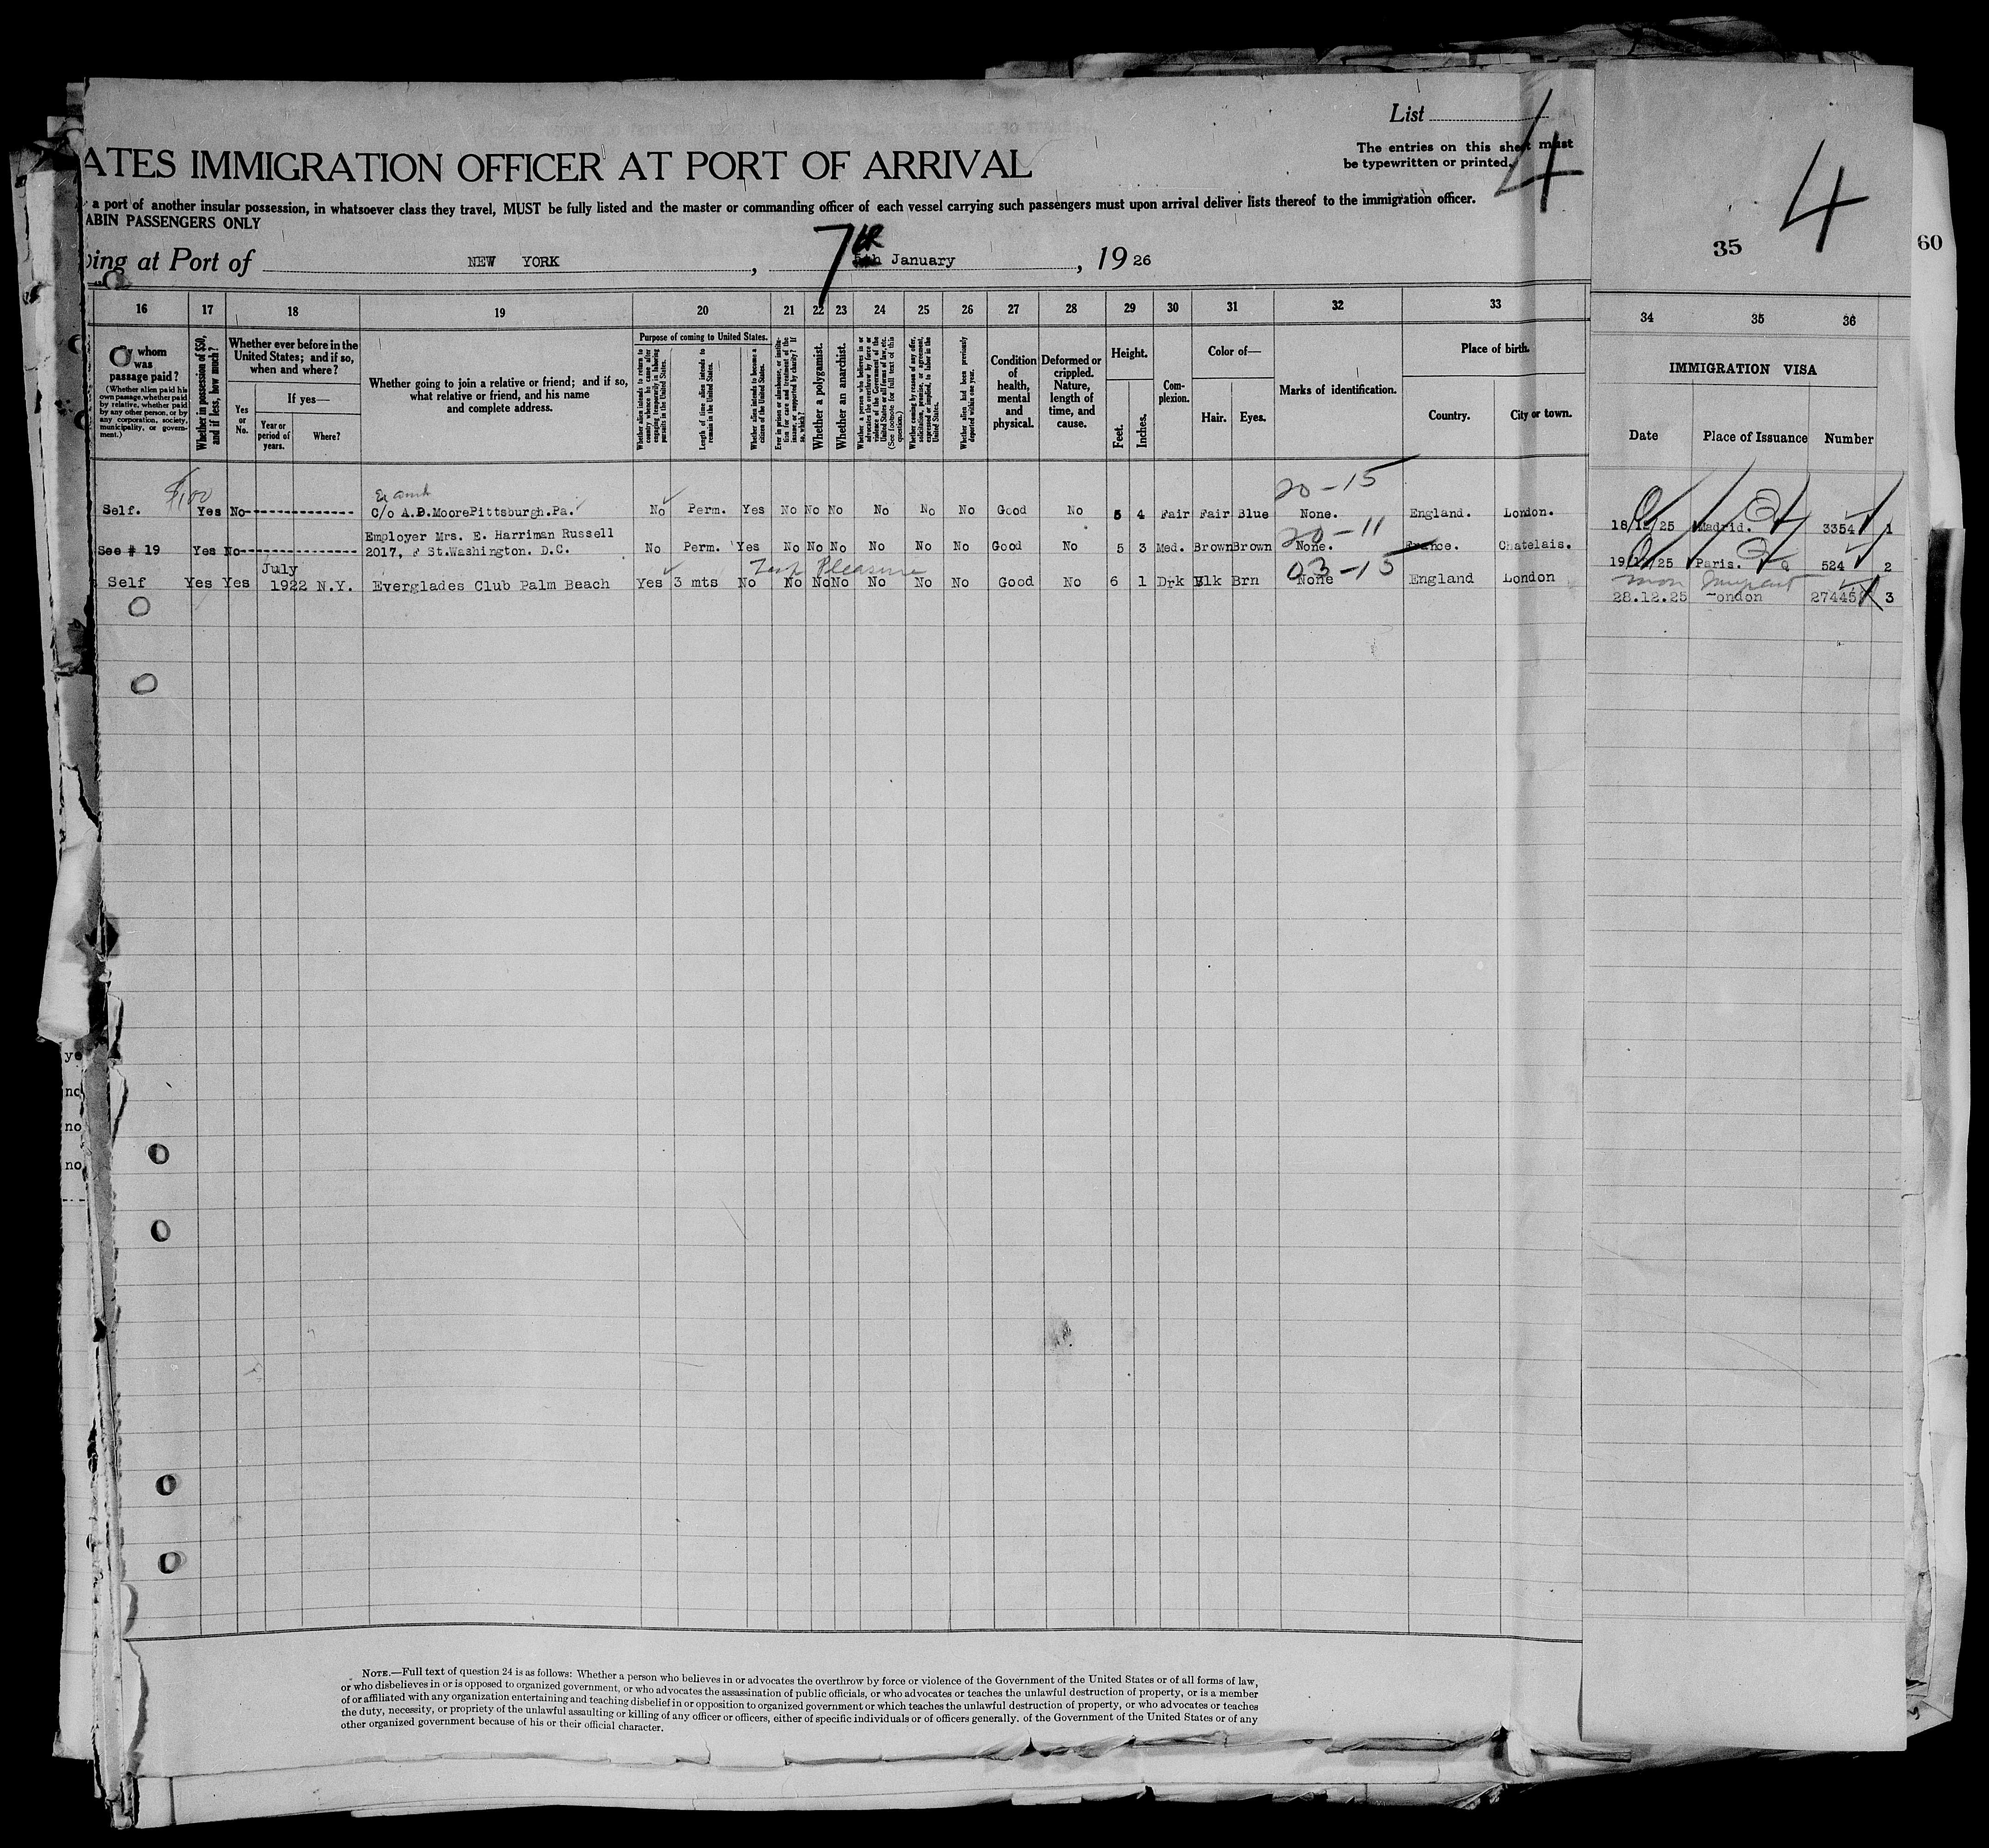 List 4
The entries on this sheet must
be typewritten or printed.
4
ATES IMMIGRATION OFFICER AT PORT OF ARRIVAL
a port of another insular possession, in whatsoever class they travel, MUST be fully listed and the master or commanding officer of each vessel carrying such passengers must upon arrival deliver lists thereof to the immigration officer.
ABIN PASSENGERS ONLY
35
60
ing at Port of NEW YORK, 7th January, 1926
16 17 18 19 20 21 22 23 24 25 26 27 28 29 30 31 32 33 34 35 36
By whom
was
passage paid?
(Whether alien paid his
own passage, whether paid
by relative, whether paid
by any other person, or by
any corporation, society,
municipality, or govern-
ment.)
Whether in possession of $50,
and if less, how much?
Whether ever before in the
United States; and if so,
when and where?
Yes
or
No.
If yes—
Year or
period of
years.
Where?
Whether going to join a relative or friend; and if so,
what relative or friend, and his name
and complete address.
Purpose of coming to United States.
Whether alien intends to return to
country whence he came after
engaging temporarily in laboring
pursuits in the United States.
Length of time alien intends to
remain in the United States.
Whether alien intends to become a
citizen of the United States.
Ever in prison or almshouse, or institu-
tion for care and treatment of the
insane, or supported by charity? If
so, which?
Whether a polygamist.
Whether an anarchist.
Whether a person who believes in or
advocates the overthrow by force or
violence of the Government of the
United States or all forms of law, etc.
(See footnote for full text of this
question.)
Whether coming by reason of any offer,
solicitation, promise, or agreement,
expressed or implied, to labor in the
United States.
Whether alien had been previously
deported within one year.
Condition
of
health,
mental
and
physical.
Deformed or
crippled.
Nature,
length of
time, and
cause.
Height.
Feet.
Inches.
Com-
plexion.
Color of—
Hair.
Eyes.
Marks of identification.
Place of birth.
Country.
City or town.
IMMIGRATION VISA
Date
Place of Issuance
Number
$100
20-15
Self. Yes No C/o A.B.MoorePittsburgh.Pa. No Perm. Yes No No No No No No Good No 5 4 Fair Fair Blue None. England. London. 18/12/25 Madrid. 3354 1
20-11
Employer Mrs. E. Harriman Russell
See # 19 Yes No 2017, F St.Washington. D.C. No Perm. Yes No No No No No No Good No 5 3 Med. Brown Brown None. France. Chatelais. 19/12/25 Paris. 524 2
Temp Pleasure
03-15
July
Self Yes Yes 1922 N.Y. Everglades Club Palm Beach Yes 3 mts No No No No No No No Good No 6 1 Drk Blk Brn None England London
28.12.25 ondon 27445 3
ye
no
no
no
NOTE.—Full text of question 24 is as follows: Whether a person who believes in or advocates the overthrow by force or violence of the Government of the United States or of all forms of law,
or who disbelieves in or is opposed to organized government, or who advocates the assassination of public officials, or who advocates or teaches the unlawful destruction of property, or is a member
of or affiliated with any organization entertaining and teaching disbelief in or opposition to organized government or which teaches the unlawful destruction of property, or who advocates or teaches
the duty, necessity, or propriety of the unlawful assaulting or killing of any officer or officers, either of specific individuals or of officers generally. of the Government of the United States or of any
other organized government because of his or their official character.